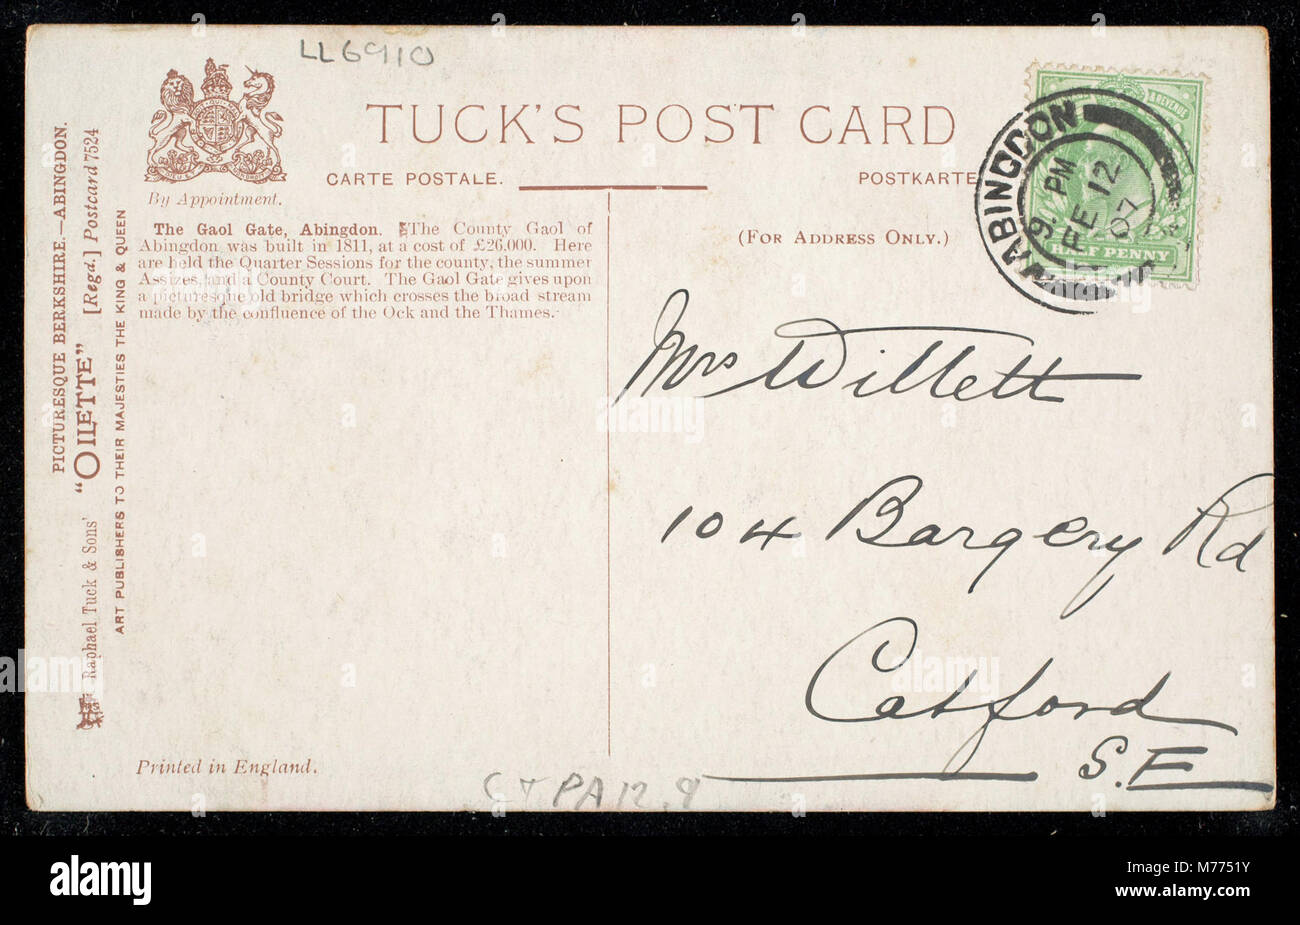 LL6910
TUCK'S POST CARD
CARTE POSTALE.
POSTKARTE
By Appointment.
(FOR ADDRESS ONLY.)
The Gaol Gate, Abingdon. The County Gaol of
Abingdon was built in 1811, at a cost of £26,000. Here
are held the Quarter Sessions for the county, the summer
Assizes, and a County Court. The Gaol Gate gives upon
a picturesque old bridge which crosses the broad stream
made by the confluence of the Ock and the Thames.
PICTURESQUE BERKSHIRE.—ABINGDON.
Raphael Tuck & Sons' "OILETTE" [Regd.] Postcard 7524
ART PUBLISHERS TO THEIR MAJESTIES THE KING & QUEEN
Printed in England.
ABINGDON
9. PM
FE 12
07
REVENUE
HALF PENNY
Mrs Willett
104 Bargery Rd
Catford
S.E
PA12.8
alamy
Image ID: M7751Y
www.alamy.com